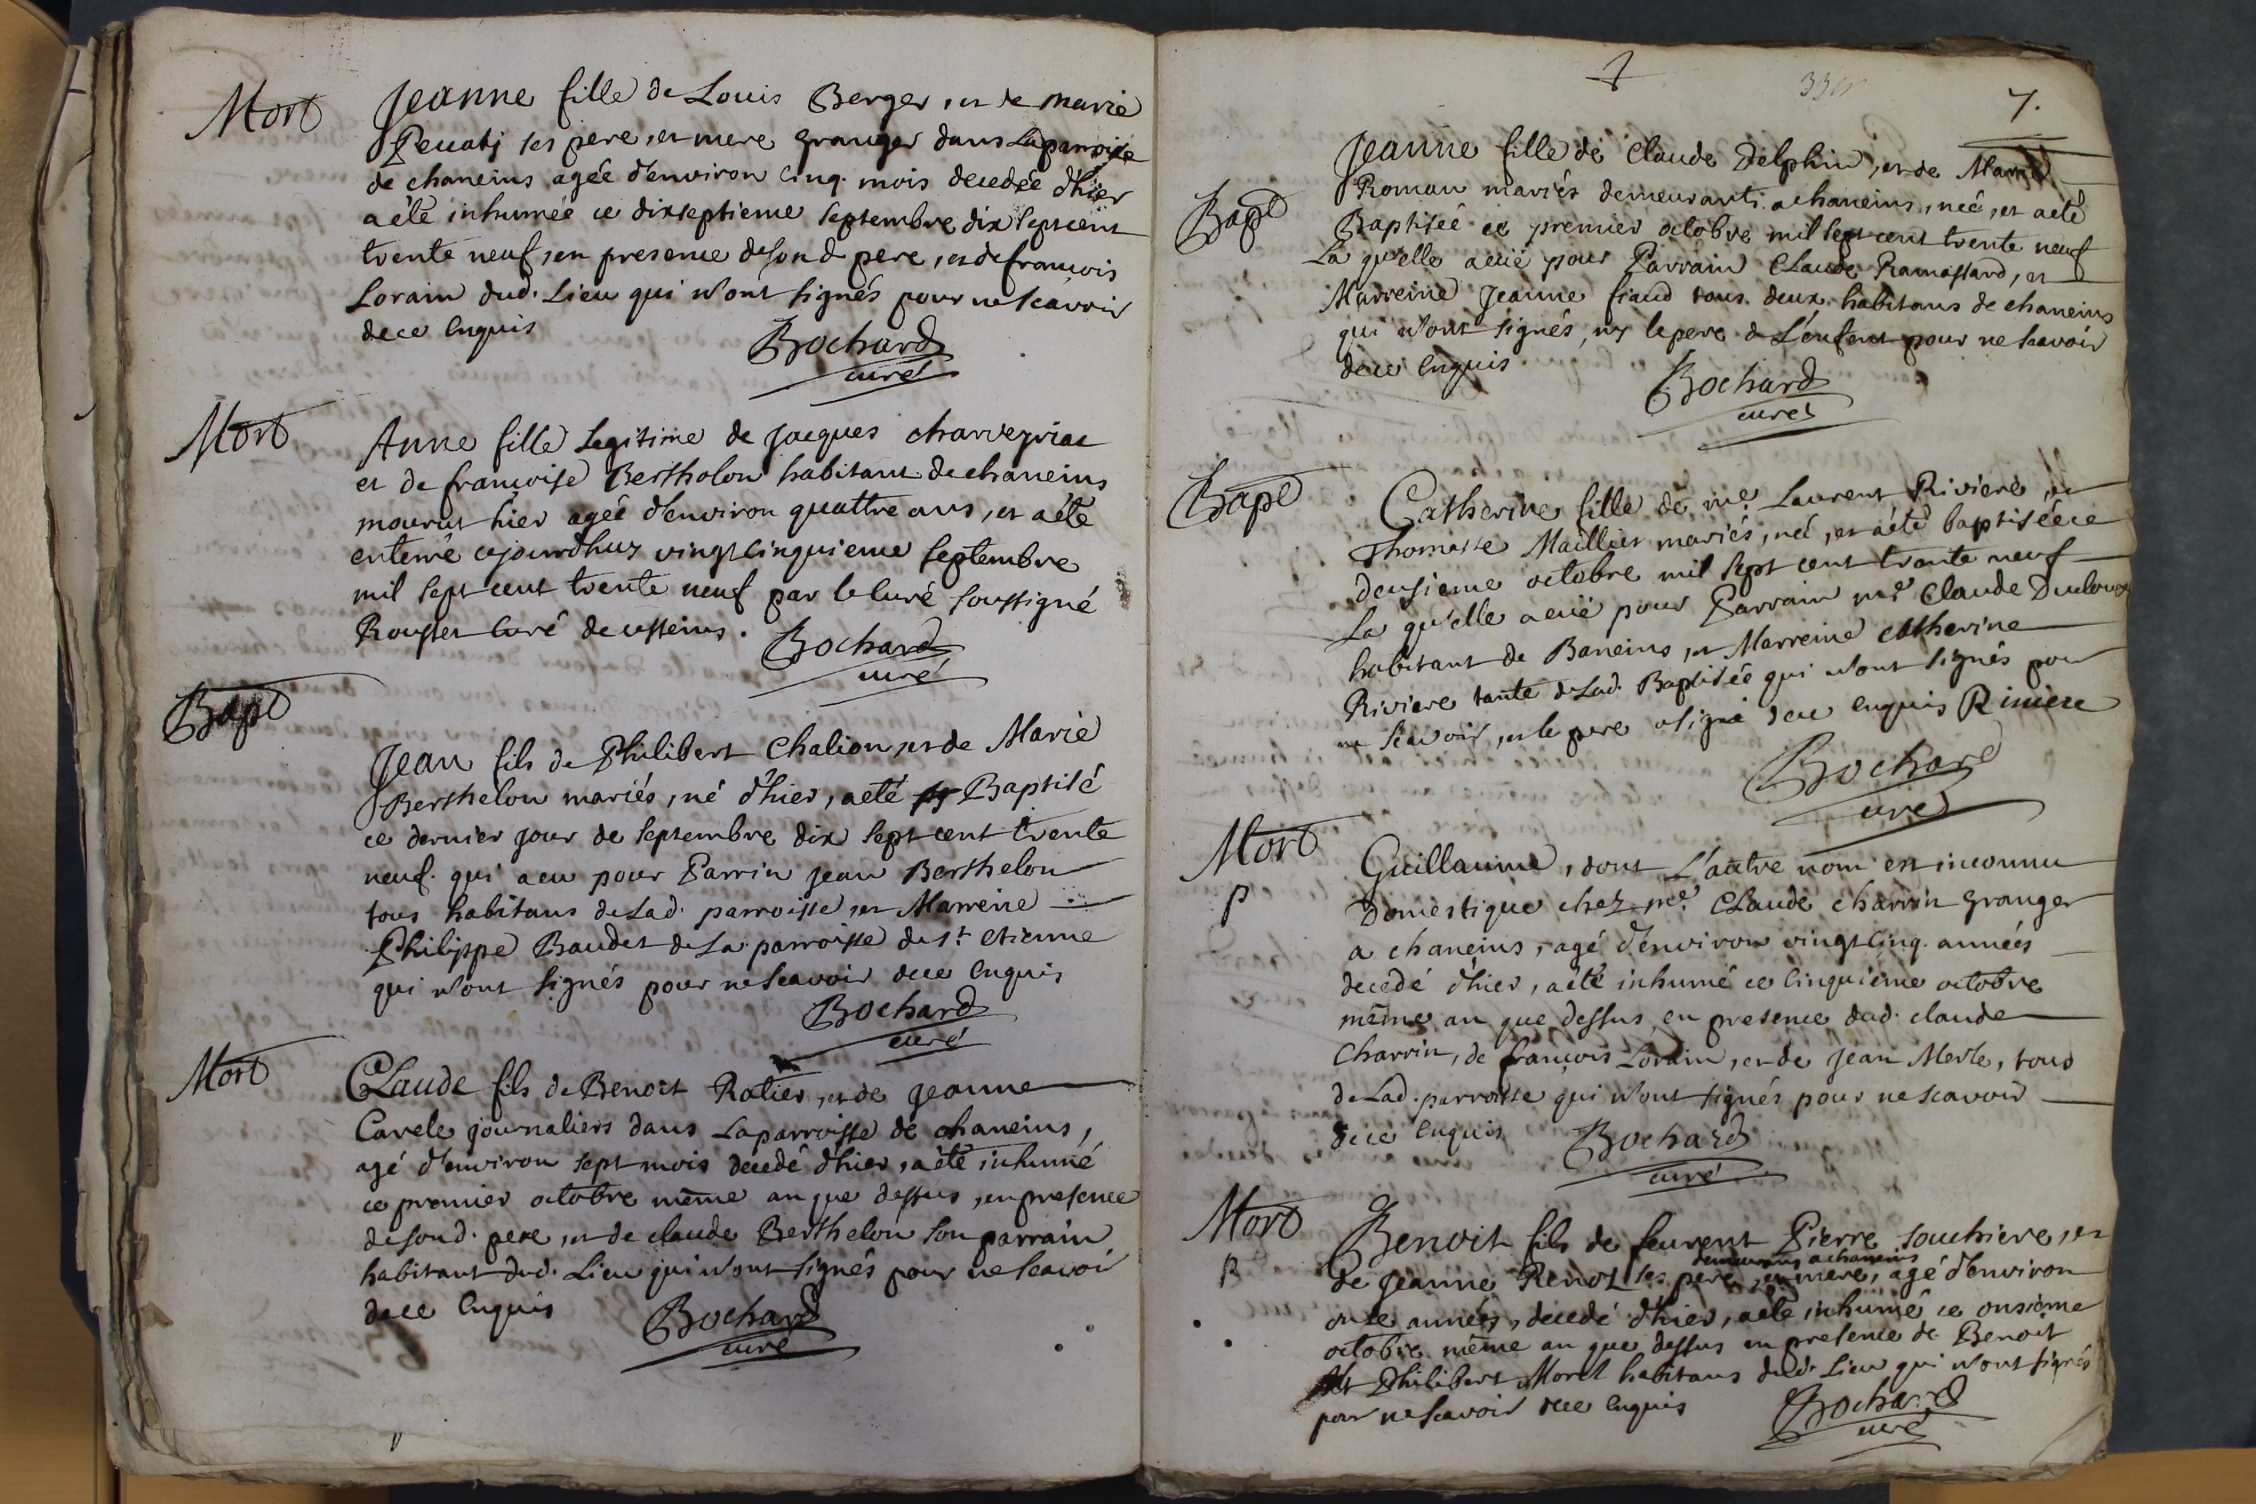 Mort
Jeanne fille de Louis Berger, et de marie
ses pere, et mere granger dans la parroisse
de chaneins agée d'environ cinq mois decedée d'hier
a été inhumée ce dixseptieme septembre dix sept cent
trente neuf, en presence de son d. pere, et de francois
Lorain dud. Lieu qui n'ont signés pour ne scavoir
de ce enquis
Bochard
curé
Mort
Anne fille legitime de jacques
et de francoise Bertholon habitant de chaneins
mourut hier agée d'environ quattre ans, et a été
enterré cejourdhuy vingt cinquieme septembre
mil sept cent trente neuf par le curé soussigné
curé de
Bochard
curé
Bapt
Jean fils de Philibert Chalion, et de Marie
Berthelon mariés, né d'hier, a eté Baptisé
ce dernier jour de septembre dix sept cent trente
neuf. qui a eu pour Parrin jean Berthelon
tous habitans de Lad. parroisse, et Marreine
Philippe Baudet de La parroisse de st. etienne
qui n'ont signés pour ne scavoir de ce enquis
Bochard
curé
Mort
Claude fils de Benoit Ratier, et de jeanne
Carele journaliers dans La parroisse de chaneins,
agé d'environ sept mois décedé d'hier, a été inhumé
ce premier octobre même an que dessus, en presence
de son d. pere, et de claude Berthelon son parrain
habitant dud. Lieu qui n'ont signés pour ne scavoir
de ce enquis
Bochard
curé
7.
Bapt
Jeanne fille de Claude Delphin, et de Marie
Roman mariés demeurants a chaneins, neé, et a eté
Baptiséé ce premier octobre mil sept cent trente neuf
La qu'elle a eüe pour Parrain Claude Ramassard, et
Marreine Jeanne fiaud tous deux habitans de chaneins
qui n'ont signés, ny le pere de L'enfent pour ne scavoir
de ce enquis
Bochard
curé
Bapt
Catherine fille de me. Laurent Riviere, et
Thomasse Maillet mariés, neé, et a été baptisée ce
deusieme octobre mil sept cent trente neuf
La qu'elle a eüe pour Parrain me. Claude
habitant de Baneins, et Marreine catherine
Riviere tante de Lad. Baptisée qui n'ont signés pour
ne scavoir, et le pere a signé de ce enquis Riviere
Bochard
curé
Mort
p
Guillaume, dont L'autre nom est inconnu
Domestique chez me. Claude charrin granger
a chaneins, agé d'environ vingt cinq années
decedé d'hier, a été inhumé ce cinquieme octobre
même an que dessus, en presence dud. claude
Charrin, de françois Lorain, et de jean Merle, tous
de Lad. parroisse qui n'ont signés pour ne scavoir
de ce enquis
Bochard
curé
Mort
p
Benoit fils de Pierre souchiere, et
demeurans a chaneins
de jeanne Renot ses pere, et mere, agé d'environ
onze années, decedé d'hier, a eté inhumé ce onsieme
octobre même an que dessus en presence de Benoit
et Philibert Morel habitans dud. Lieu qui n'ont signés
pour ne scavoir de ce enquis
Bochard
curé